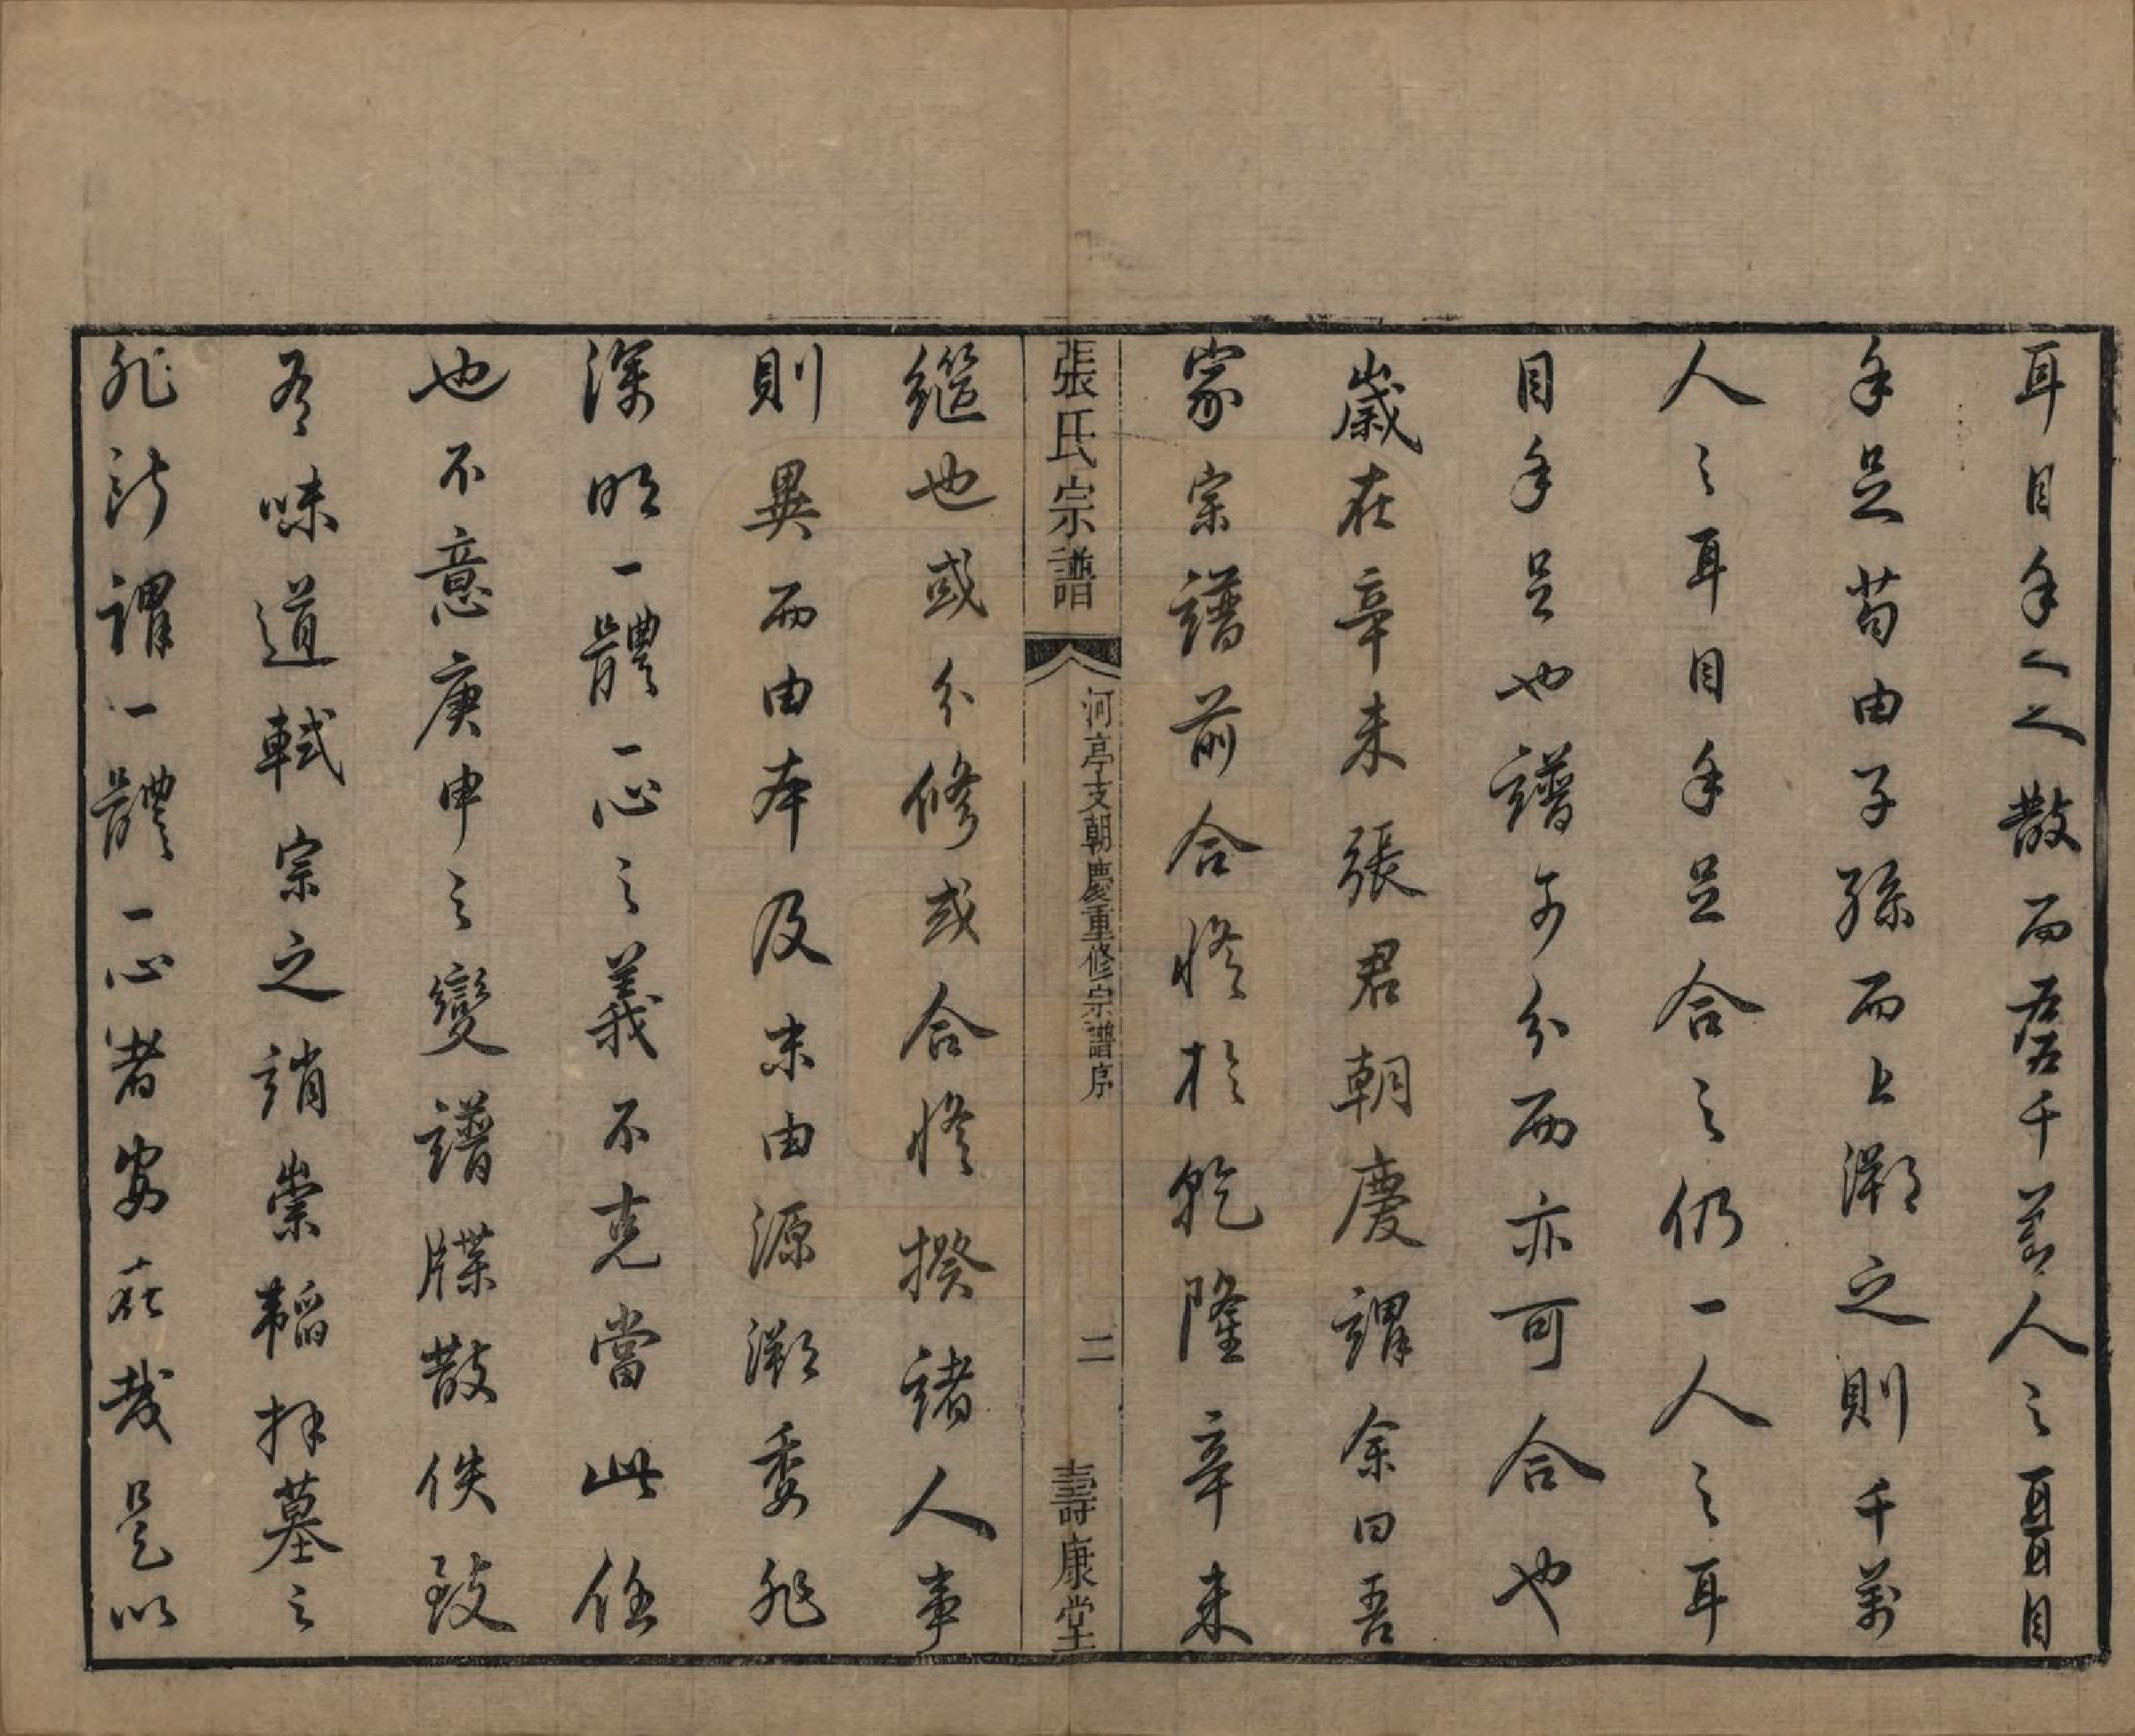 耳目手足之散而為千萬人之耳目
手足苟由子孫而上溯之則千萬
人之耳目手足合之仍一人之耳
目手足也譜可分而亦可合也
歲在辛未張君朝慶謂余曰吾
家宗譜前合修於乾隆辛未
張氏宗譜
河亭支朝慶重修宗譜序
二
壽康堂
繼也或分修或合修揆諸人事
則異而由本及末由源溯委非
深明一體一心之義不克當此任
也不意庚申之變譜牒散佚致
有味道軾宗之誚崇韜拜墓之
非所謂一體一心者安在哉是以